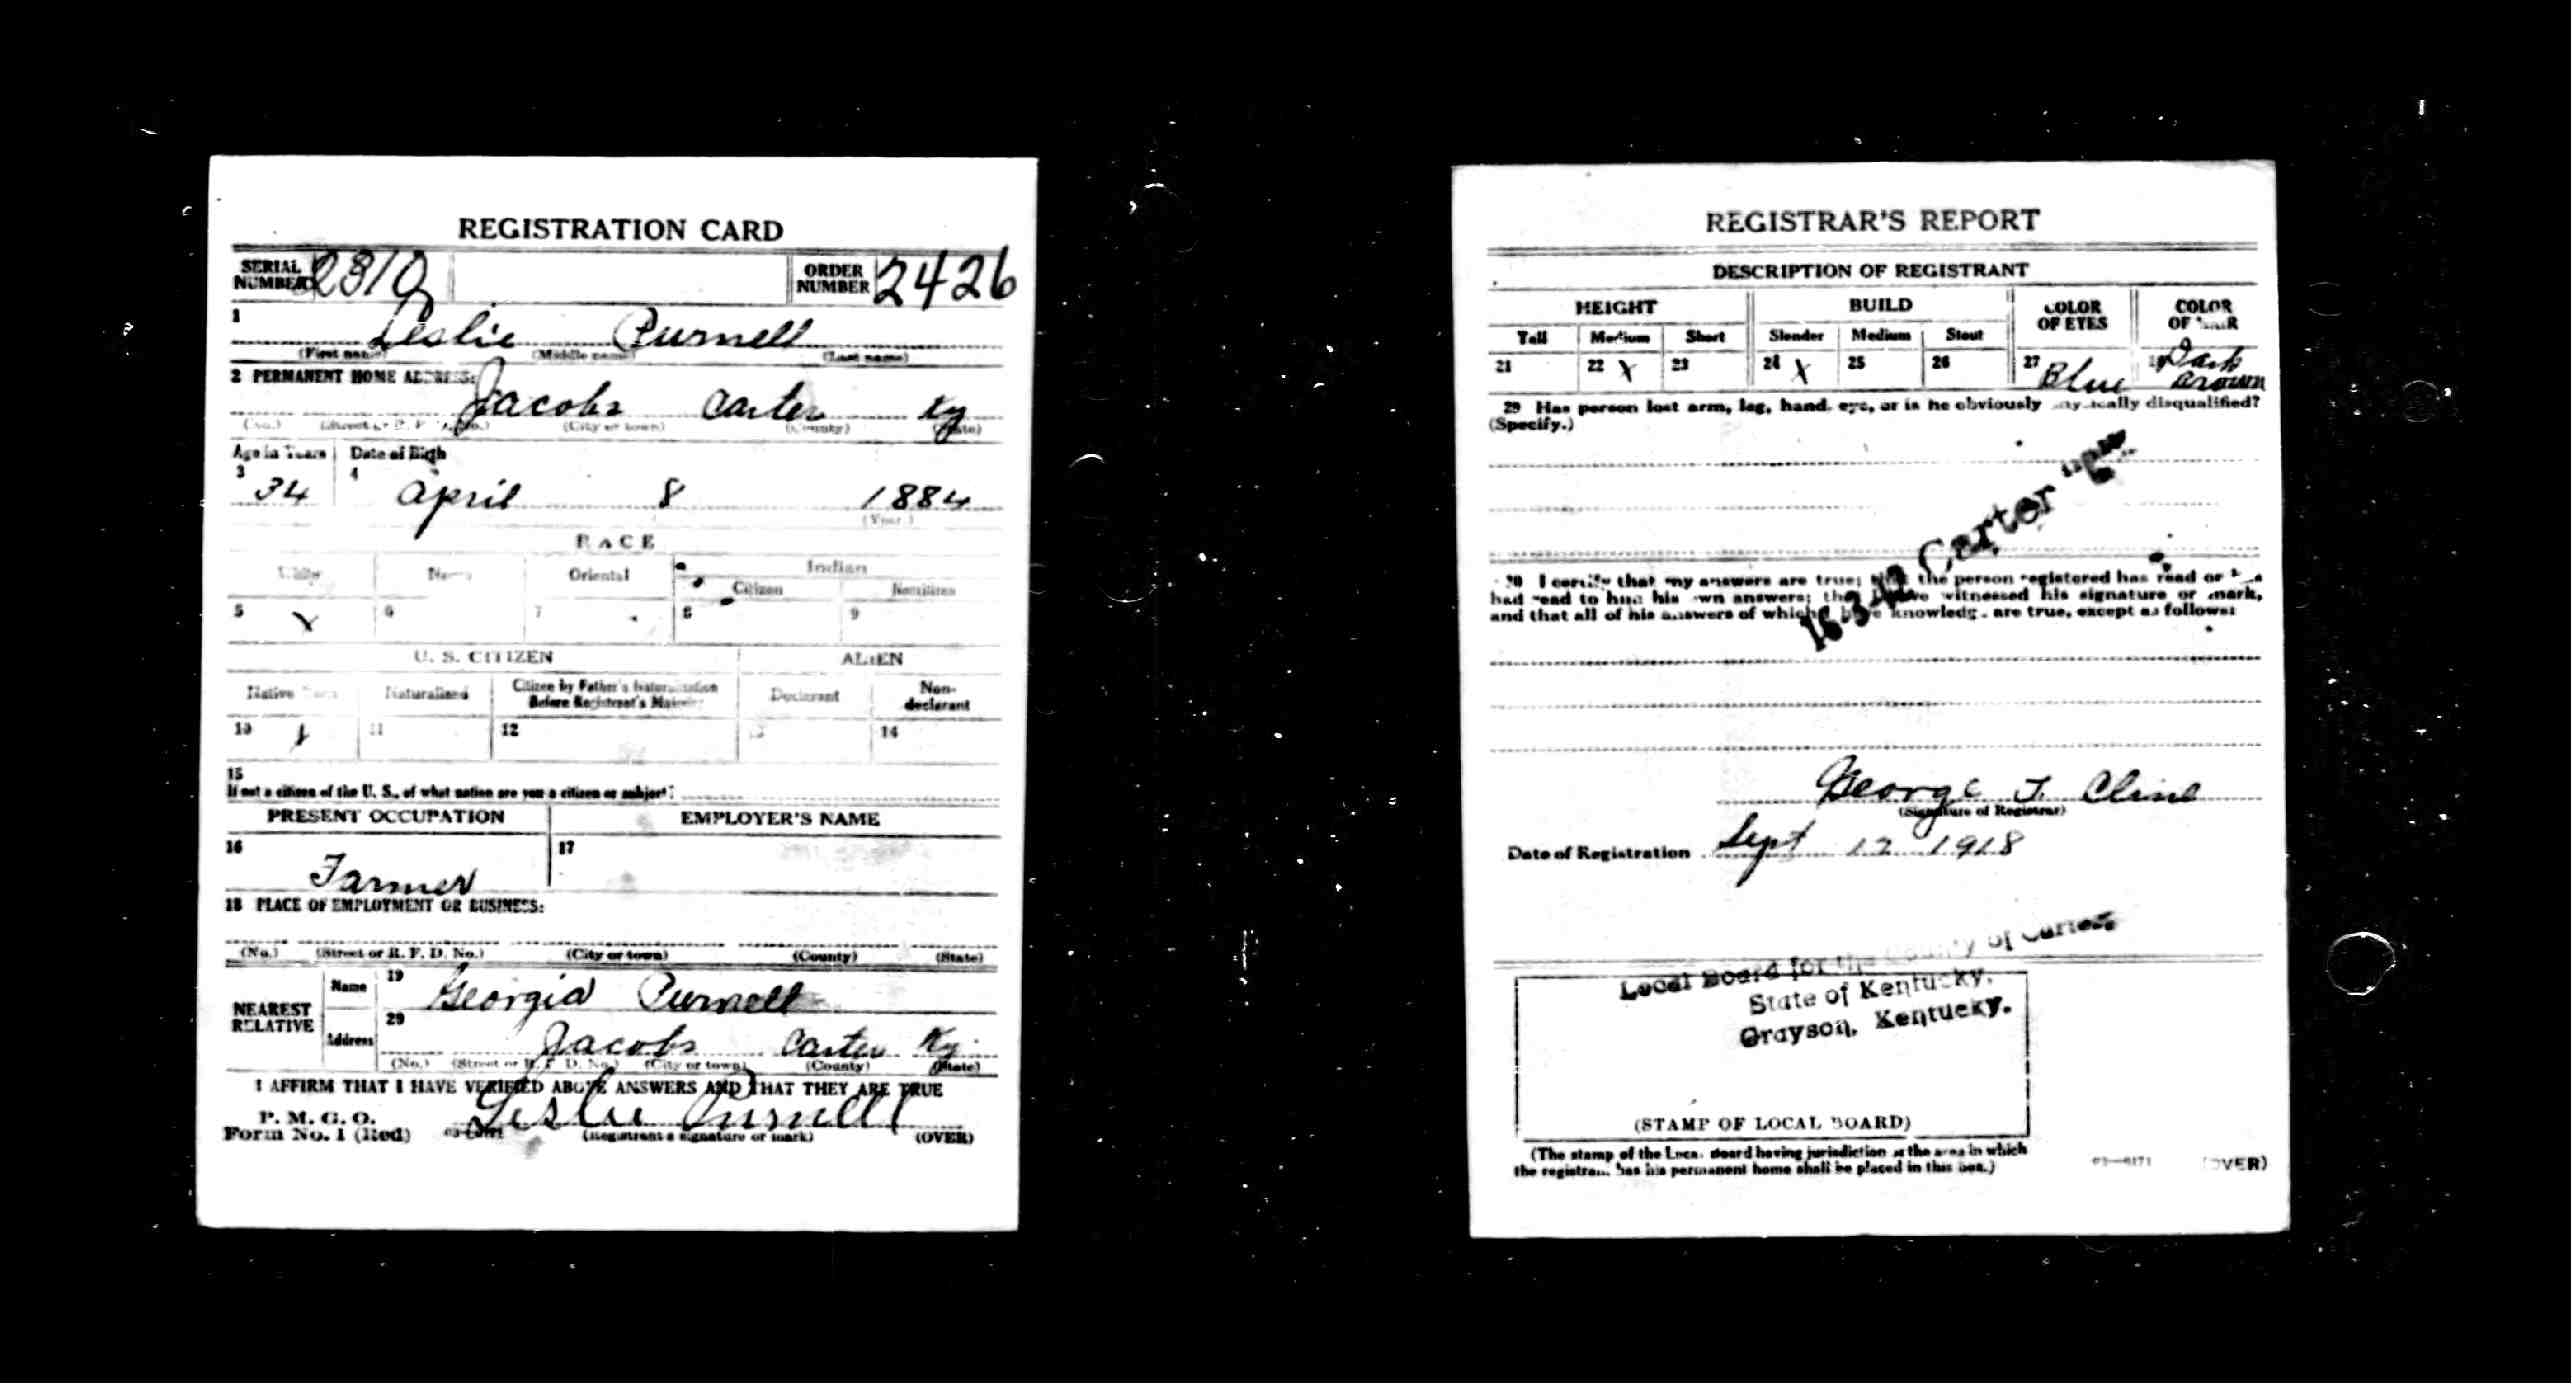 REGISTRATION CARD
SERIAL NUMBER 2310 ORDER NUMBER 2426
1 Leslie Purnell
(First name) (Middle name) (Last name)
2 PERMANENT HOME ADDRESS:
Jacobs Carter Ky
(No.) (Street or R. F. D. No.) (City or town) (County) (State)
Age in Years Date of Birth
3 34 4 April 8 1884
(Year)
RACE
White Negro Oriental Indian
Citizen Noncitizen
5 X 6 7 8 9
U. S. CITIZEN ALIEN
Native Born Naturalized Citizen by Father's Naturalization Before Registrant's Majority Declarant Non-declarant
10 X 11 12 13 14
15
If not a citizen of the U. S., of what nation are you a citizen or subject?
PRESENT OCCUPATION EMPLOYER'S NAME
16 Farmer 17
18 PLACE OF EMPLOYMENT OR BUSINESS:
(No.) (Street or R. F. D. No.) (City or town) (County) (State)
NEAREST RELATIVE
Name 19 Georgia Purnell
Address 20 Jacobs Carter Ky
(No.) (Street or R. F. D. No.) (City or town) (County) (State)
I AFFIRM THAT I HAVE VERIFIED ABOVE ANSWERS AND THAT THEY ARE TRUE
P. M. G. O.
Form No. 1 (Red) Leslie Purnell
(Registrant's signature or mark) (OVER)
REGISTRAR'S REPORT
DESCRIPTION OF REGISTRANT
HEIGHT BUILD COLOR OF EYES COLOR OF HAIR
Tall Medium Short Slender Medium Stout
21 22 X 23 24 X 25 26 27 Blue Dark Brown
29 Has person lost arm, leg, hand, eye, or is he obviously physically disqualified?
(Specify.)
Carter
30 I certify that my answers are true; that the person registered has read or has
had read to him his own answers; that I have witnessed his signature or mark,
and that all of his answers of which I have knowledge are true, except as follows:
George F. Cline
(Signature of Registrar)
Date of Registration Sept 12 1918
Local Board for the County of Carter
State of Kentucky,
Grayson, Kentucky.
(STAMP OF LOCAL BOARD)
(The stamp of the Local Board having jurisdiction of the area in which
the registrant has his permanent home shall be placed in this box.)
(OVER)